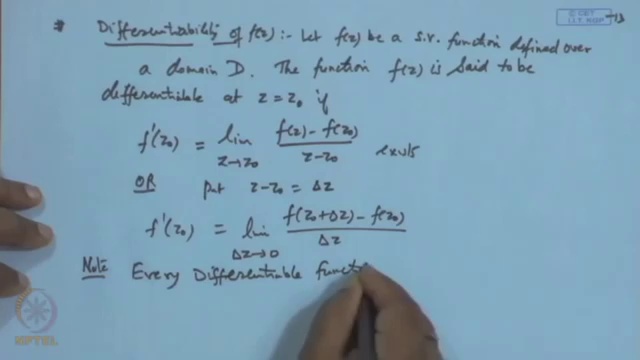 © CET
I.I.T. KGP
* Differentiability of f(z) :- Let f(z) be a s.v. function defined over
a domain D. The function f(z) is said to be
differentiable at z = z₀ if
f'(z₀) = lim z→z₀ (f(z) - f(z₀)) / (z - z₀) exists
OR put z - z₀ = Δz
f'(z₀) = lim Δz→0 (f(z₀+Δz) - f(z₀)) / Δz
Note Every Differentiable funct
NPTEL